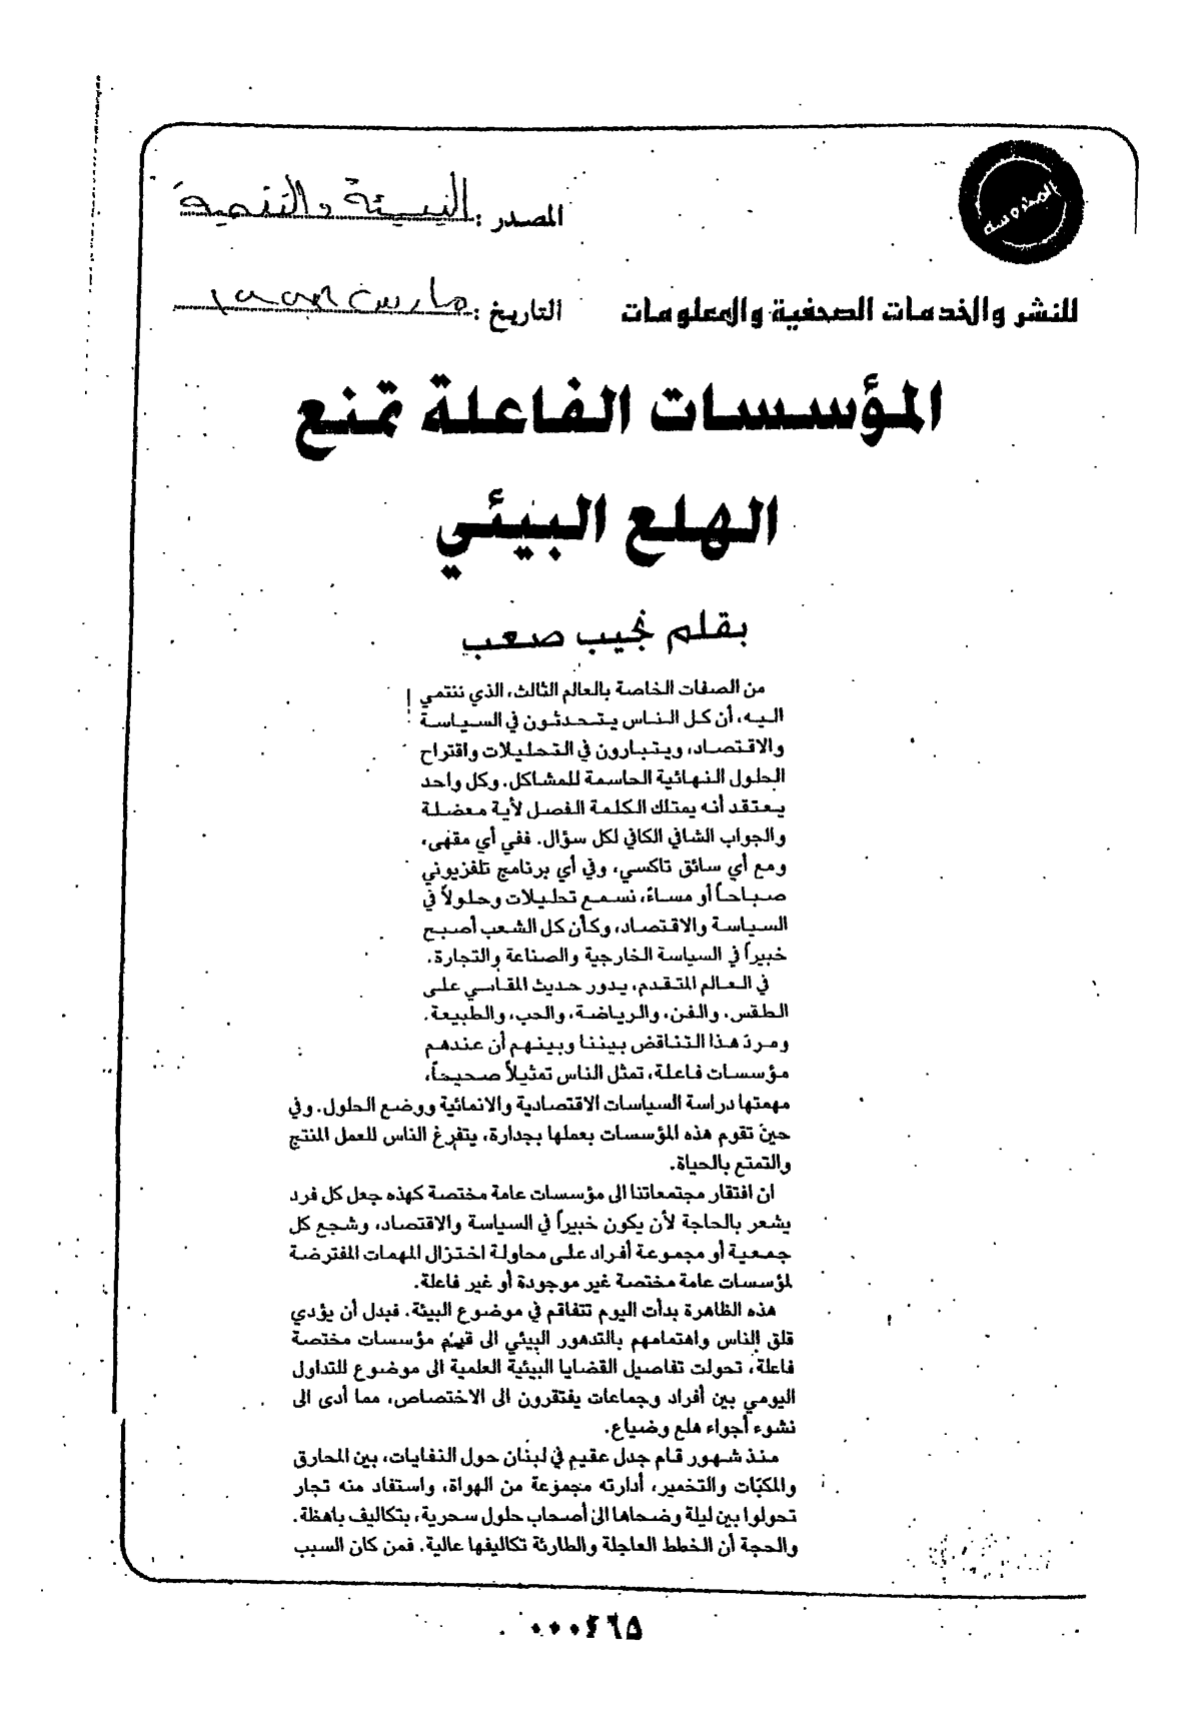 المحروسة
المصدر : البيئة والتنمية
للنشر والخدمات الصحفية والمعلومات
التاريخ : مارس
المؤسسات الفاعلة تمنع
الهلع البيئي
بقلم نجيب صعب
من الصفات الخاصة بالعالم الثالث، الذي ننتمي
اليه، أن كل الناس يتحدثون في السياسة
والاقتصاد، ويتبارون في التحليلات واقتراح
الحلول النهائية الحاسمة للمشاكل. وكل واحد
يعتقد أنه يمتلك الكلمة الفصل لأية معضلة
والجواب الشافي الكافي لكل سؤال. ففي أي مقهى،
ومع أي سائق تاكسي، وفي أي برنامج تلفزيوني
صباحاً أو مساءً، نسمع تحليلات وحلولاً في
السياسة والاقتصاد، وكأن كل الشعب أصبح
خبيراً في السياسة الخارجية والصناعة والتجارة.
في العالم المتقدم، يدور حديث المقاسي على
الطقس، والفن، والرياضة، والحب، والطبيعة.
ومردّ هذا التناقض بيننا وبينهم أن عندهم
مؤسسات فاعلة، تمثل الناس تمثيلاً صحيحاً،
مهمتها دراسة السياسات الاقتصادية والانمائية ووضع الحلول. وفي
حين تقوم هذه المؤسسات بعملها بجدارة، يتفرغ الناس للعمل المنتج
والتمتع بالحياة.
ان افتقار مجتمعاتنا الى مؤسسات عامة مختصة كهذه جعل كل فرد
يشعر بالحاجة لأن يكون خبيراً في السياسة والاقتصاد، وشجع كل
جمعية أو مجموعة أفراد على محاولة اختزال المهمات المفترضة
لمؤسسات عامة مختصة غير موجودة أو غير فاعلة.
هذه الظاهرة بدأت اليوم تتفاقم في موضوع البيئة. فبدل أن يؤدي
قلق الناس واهتمامهم بالتدهور البيئي الى قيام مؤسسات مختصة
فاعلة، تحولت تفاصيل القضايا البيئية العلمية الى موضوع للتداول
اليومي بين أفراد وجماعات يفتقرون الى الاختصاص، مما أدى الى
نشوء أجواء هلع وضياع.
منذ شهور قام جدل عقيم في لبنان حول النفايات، بين المحارق
والمكبّات والتخمير، أدارته مجموعة من الهواة، واستفاد منه تجار
تحولوا بين ليلة وضحاها الى أصحاب حلول سحرية، بتكاليف باهظة.
والحجة أن الخطط العاجلة والطارئة تكاليفها عالية. فمن كان السبب
٠٠٠٤٦٥